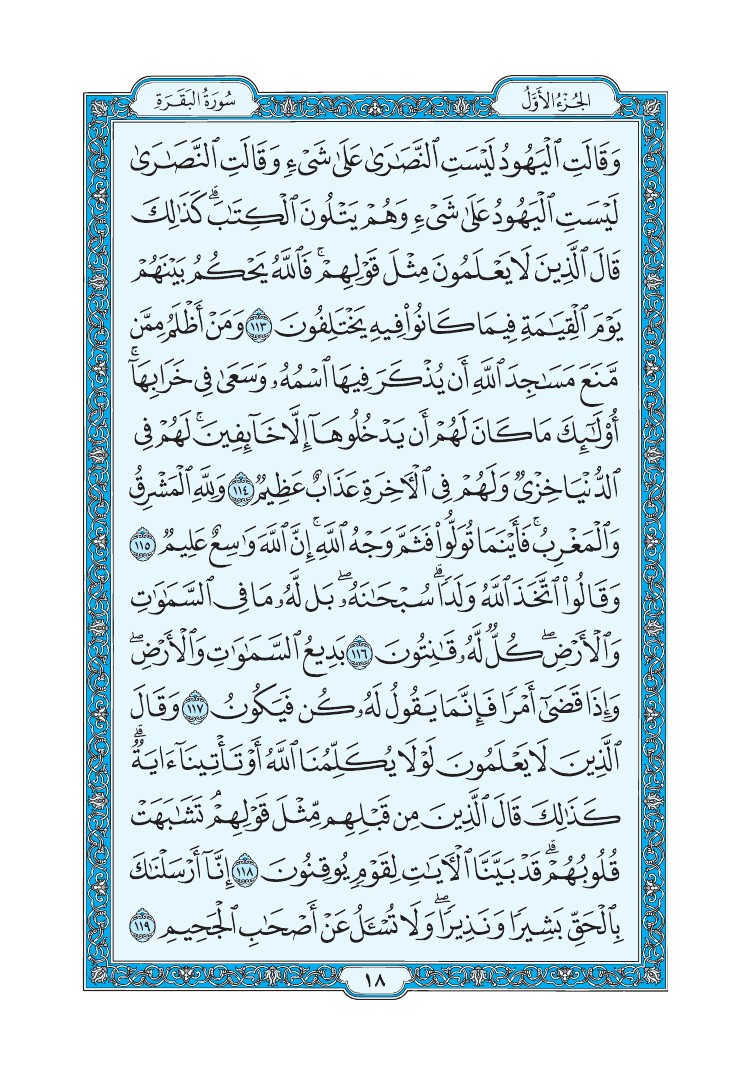 الجُزْءُ الأَوَّلُ
سُورَةُ البَقَرَةِ
وَقَالَتِ ٱلْيَهُودُ لَيْسَتِ ٱلنَّصَٰرَىٰ عَلَىٰ شَىْءٍ وَقَالَتِ ٱلنَّصَٰرَىٰ
لَيْسَتِ ٱلْيَهُودُ عَلَىٰ شَىْءٍ وَهُمْ يَتْلُونَ ٱلْكِتَٰبَ ۗ كَذَٰلِكَ
قَالَ ٱلَّذِينَ لَا يَعْلَمُونَ مِثْلَ قَوْلِهِمْ ۚ فَٱللَّهُ يَحْكُمُ بَيْنَهُمْ
يَوْمَ ٱلْقِيَٰمَةِ فِيمَا كَانُوا۟ فِيهِ يَخْتَلِفُونَ ١١٣ وَمَنْ أَظْلَمُ مِمَّن
مَّنَعَ مَسَٰجِدَ ٱللَّهِ أَن يُذْكَرَ فِيهَا ٱسْمُهُۥ وَسَعَىٰ فِى خَرَابِهَآ ۚ
أُو۟لَٰٓئِكَ مَا كَانَ لَهُمْ أَن يَدْخُلُوهَآ إِلَّا خَآئِفِينَ ۚ لَهُمْ فِى
ٱلدُّنْيَا خِزْىٌ وَلَهُمْ فِى ٱلْءَاخِرَةِ عَذَابٌ عَظِيمٌ ١١٤ وَلِلَّهِ ٱلْمَشْرِقُ
وَٱلْمَغْرِبُ ۚ فَأَيْنَمَا تُوَلُّوا۟ فَثَمَّ وَجْهُ ٱللَّهِ ۚ إِنَّ ٱللَّهَ وَٰسِعٌ عَلِيمٌ ١١٥
وَقَالُوا۟ ٱتَّخَذَ ٱللَّهُ وَلَدًا ۗ سُبْحَٰنَهُۥ ۖ بَل لَّهُۥ مَا فِى ٱلسَّمَٰوَٰتِ
وَٱلْأَرْضِ ۖ كُلٌّ لَّهُۥ قَٰنِتُونَ ١١٦ بَدِيعُ ٱلسَّمَٰوَٰتِ وَٱلْأَرْضِ ۖ
وَإِذَا قَضَىٰٓ أَمْرًا فَإِنَّمَا يَقُولُ لَهُۥ كُن فَيَكُونُ ١١٧ وَقَالَ
ٱلَّذِينَ لَا يَعْلَمُونَ لَوْلَا يُكَلِّمُنَا ٱللَّهُ أَوْ تَأْتِينَآ ءَايَةٌ ۗ
كَذَٰلِكَ قَالَ ٱلَّذِينَ مِن قَبْلِهِم مِّثْلَ قَوْلِهِمْ ۘ تَشَٰبَهَتْ
قُلُوبُهُمْ ۗ قَدْ بَيَّنَّا ٱلْءَايَٰتِ لِقَوْمٍ يُوقِنُونَ ١١٨ إِنَّآ أَرْسَلْنَٰكَ
بِٱلْحَقِّ بَشِيرًا وَنَذِيرًا ۖ وَلَا تُسْـَٔلُ عَنْ أَصْحَٰبِ ٱلْجَحِيمِ ١١٩
١٨